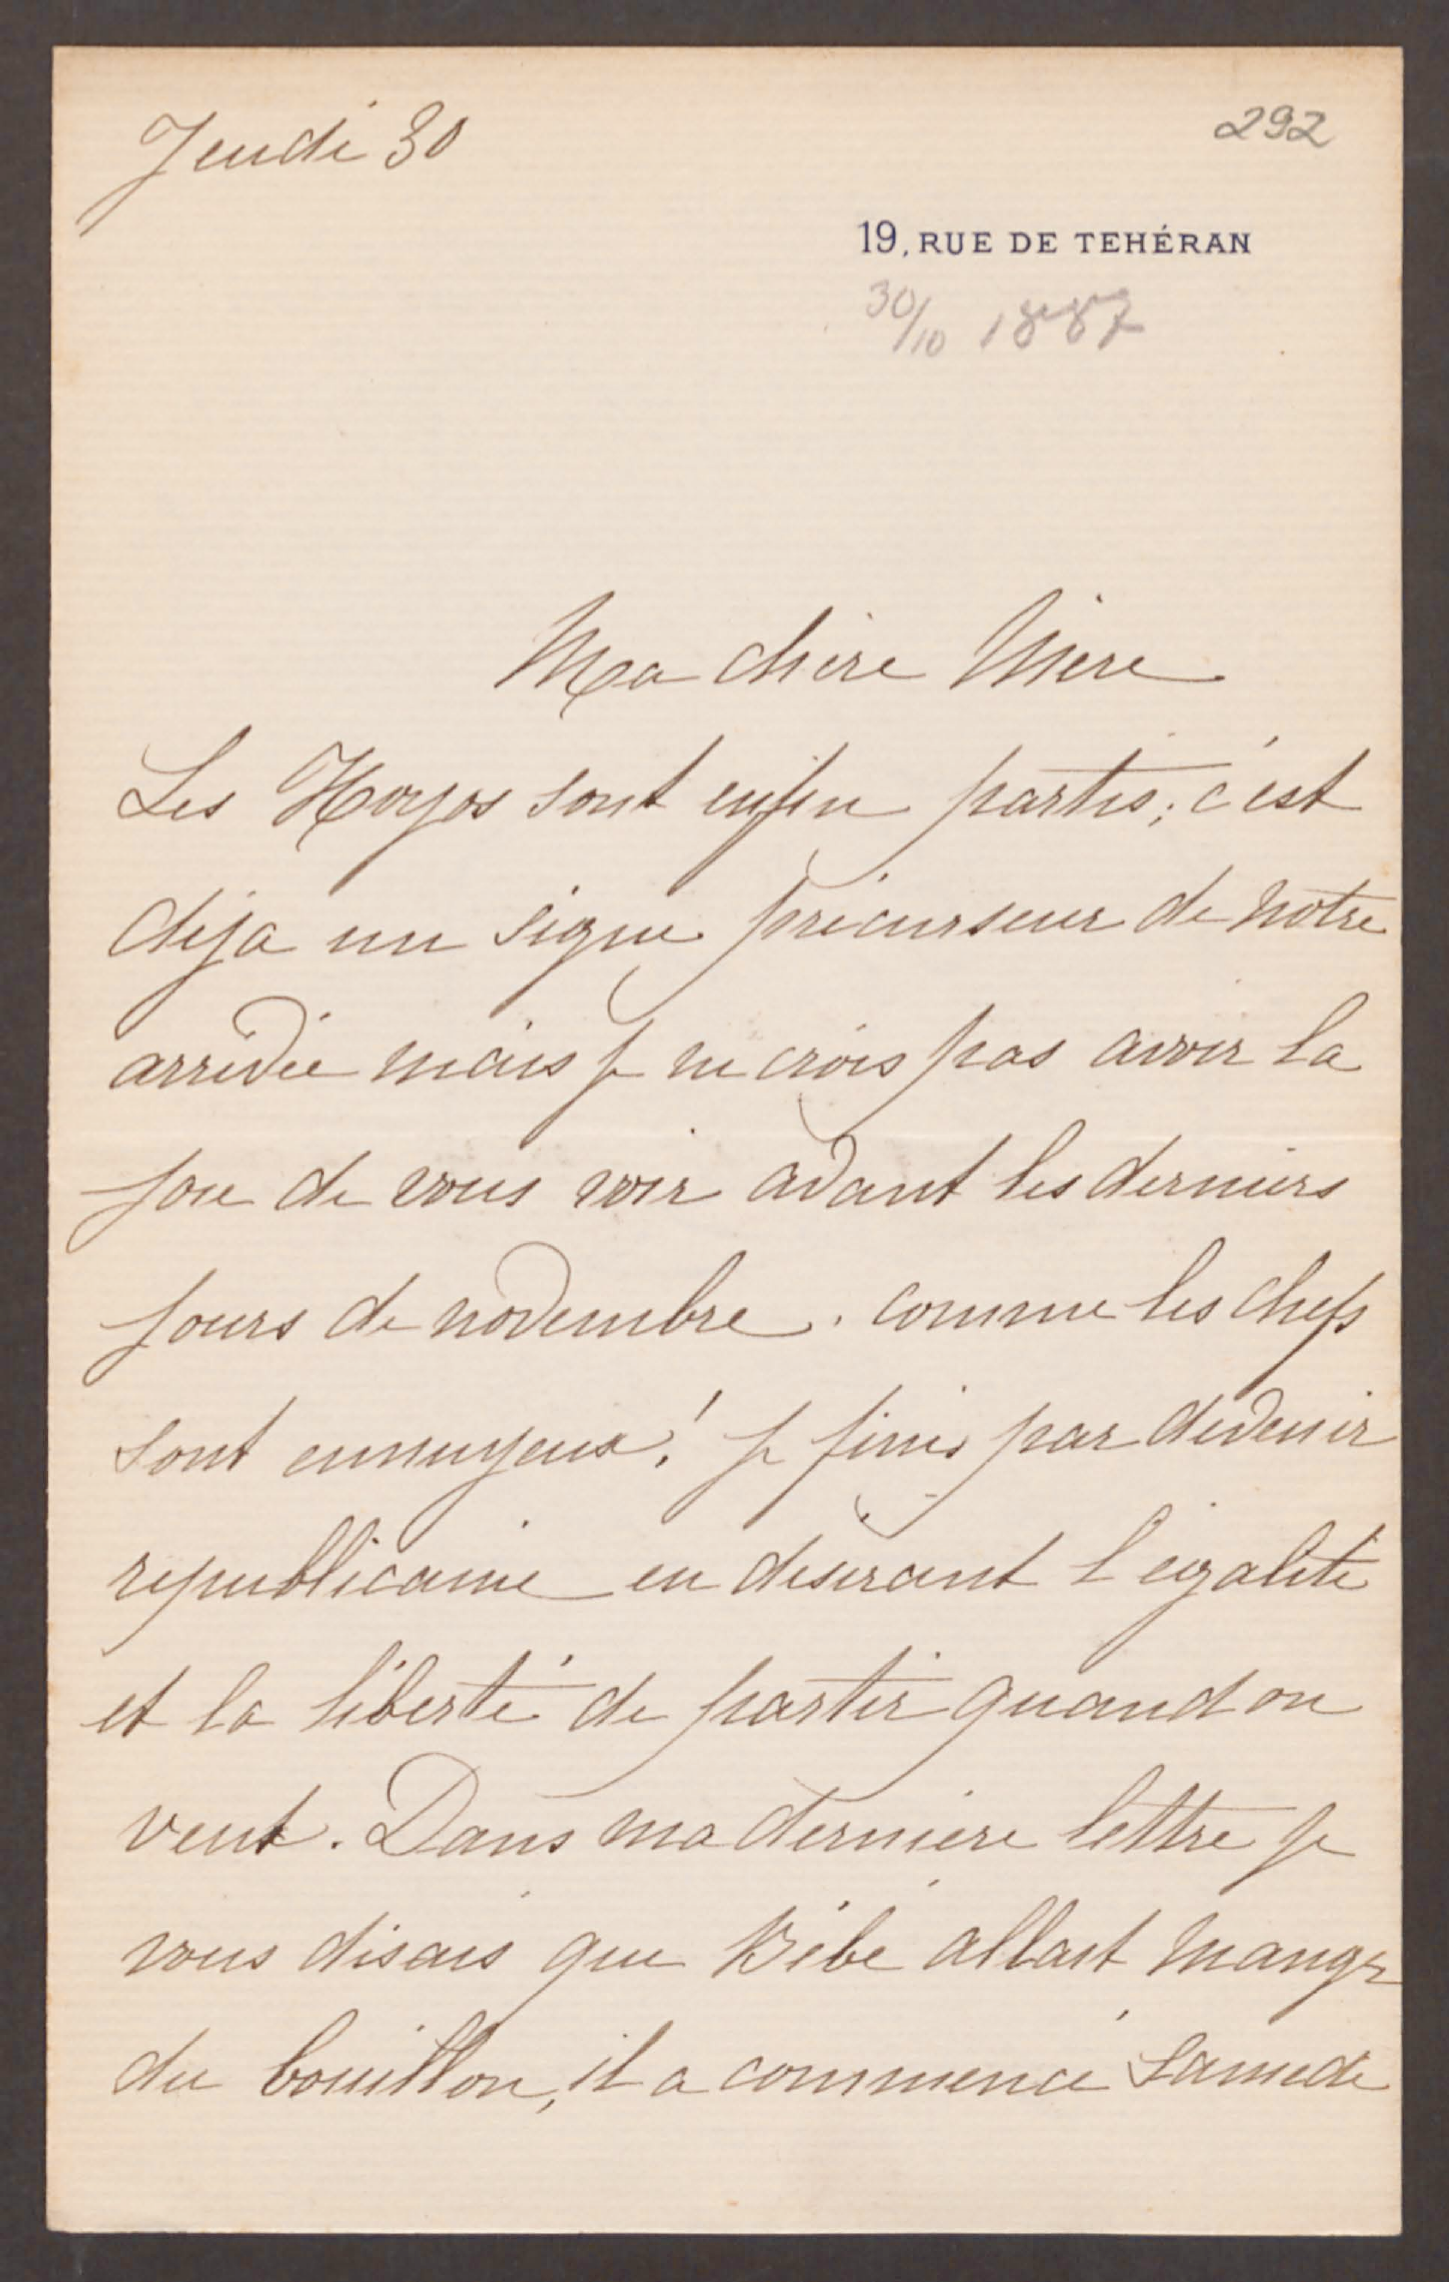 Jeudi 30
292
19, RUE DE TEHÉRAN
30/10 1887
Ma chère Mère
Les Hoyos sont enfin partis; c'est
déja un signe précurseur de notre
arrivée mais je ne crois pas avoir la
joie de vous voir avant les derniers
jours de novembre. comme les chefs
sont ennuyeux! je finis par devenir
republicaine en desirant l'égalité
et la liberté de partir quand on
veut. Dans ma dernière lettre je
vous disais que Bébé allait manger
du bouillon, il a commencé Samedi